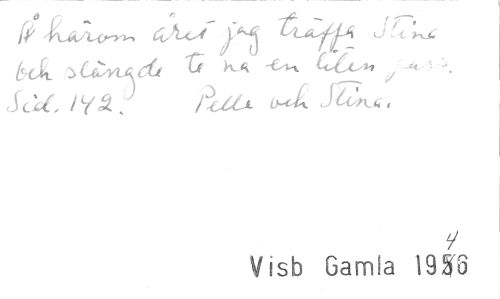 Å härom året jag träffa Stina
och slängde te na en liten puss.
Sid. 142. Pelle och Stina.
4
Visb Gamla 1956